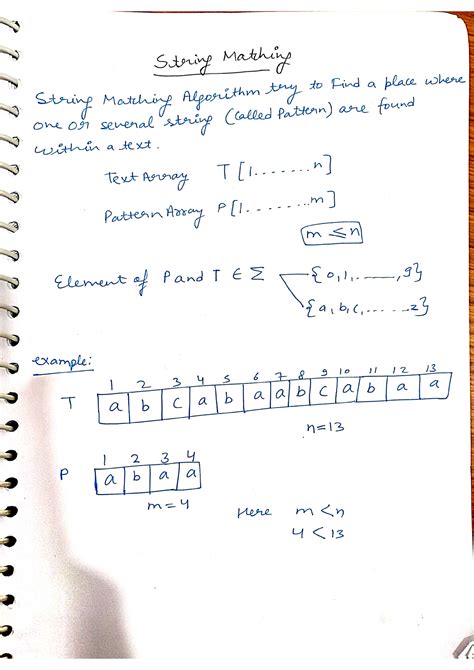 String Matching
String Matching Algorithm try to Find a place where
one or several string (called Pattern) are found
within a text.
Text Array T[1.......n]
Pattern Array P[1........m]
m ≤ n
Element of P and T ∈ Σ {0,1,——,9}
{a,b,c,-----z}
example:
1 2 3 4 5 6 7 8 9 10 11 12 13
T a b c a b a a b c a b a a
n=13
1 2 3 4
P a b a a
m=4
Here m<n
4<13